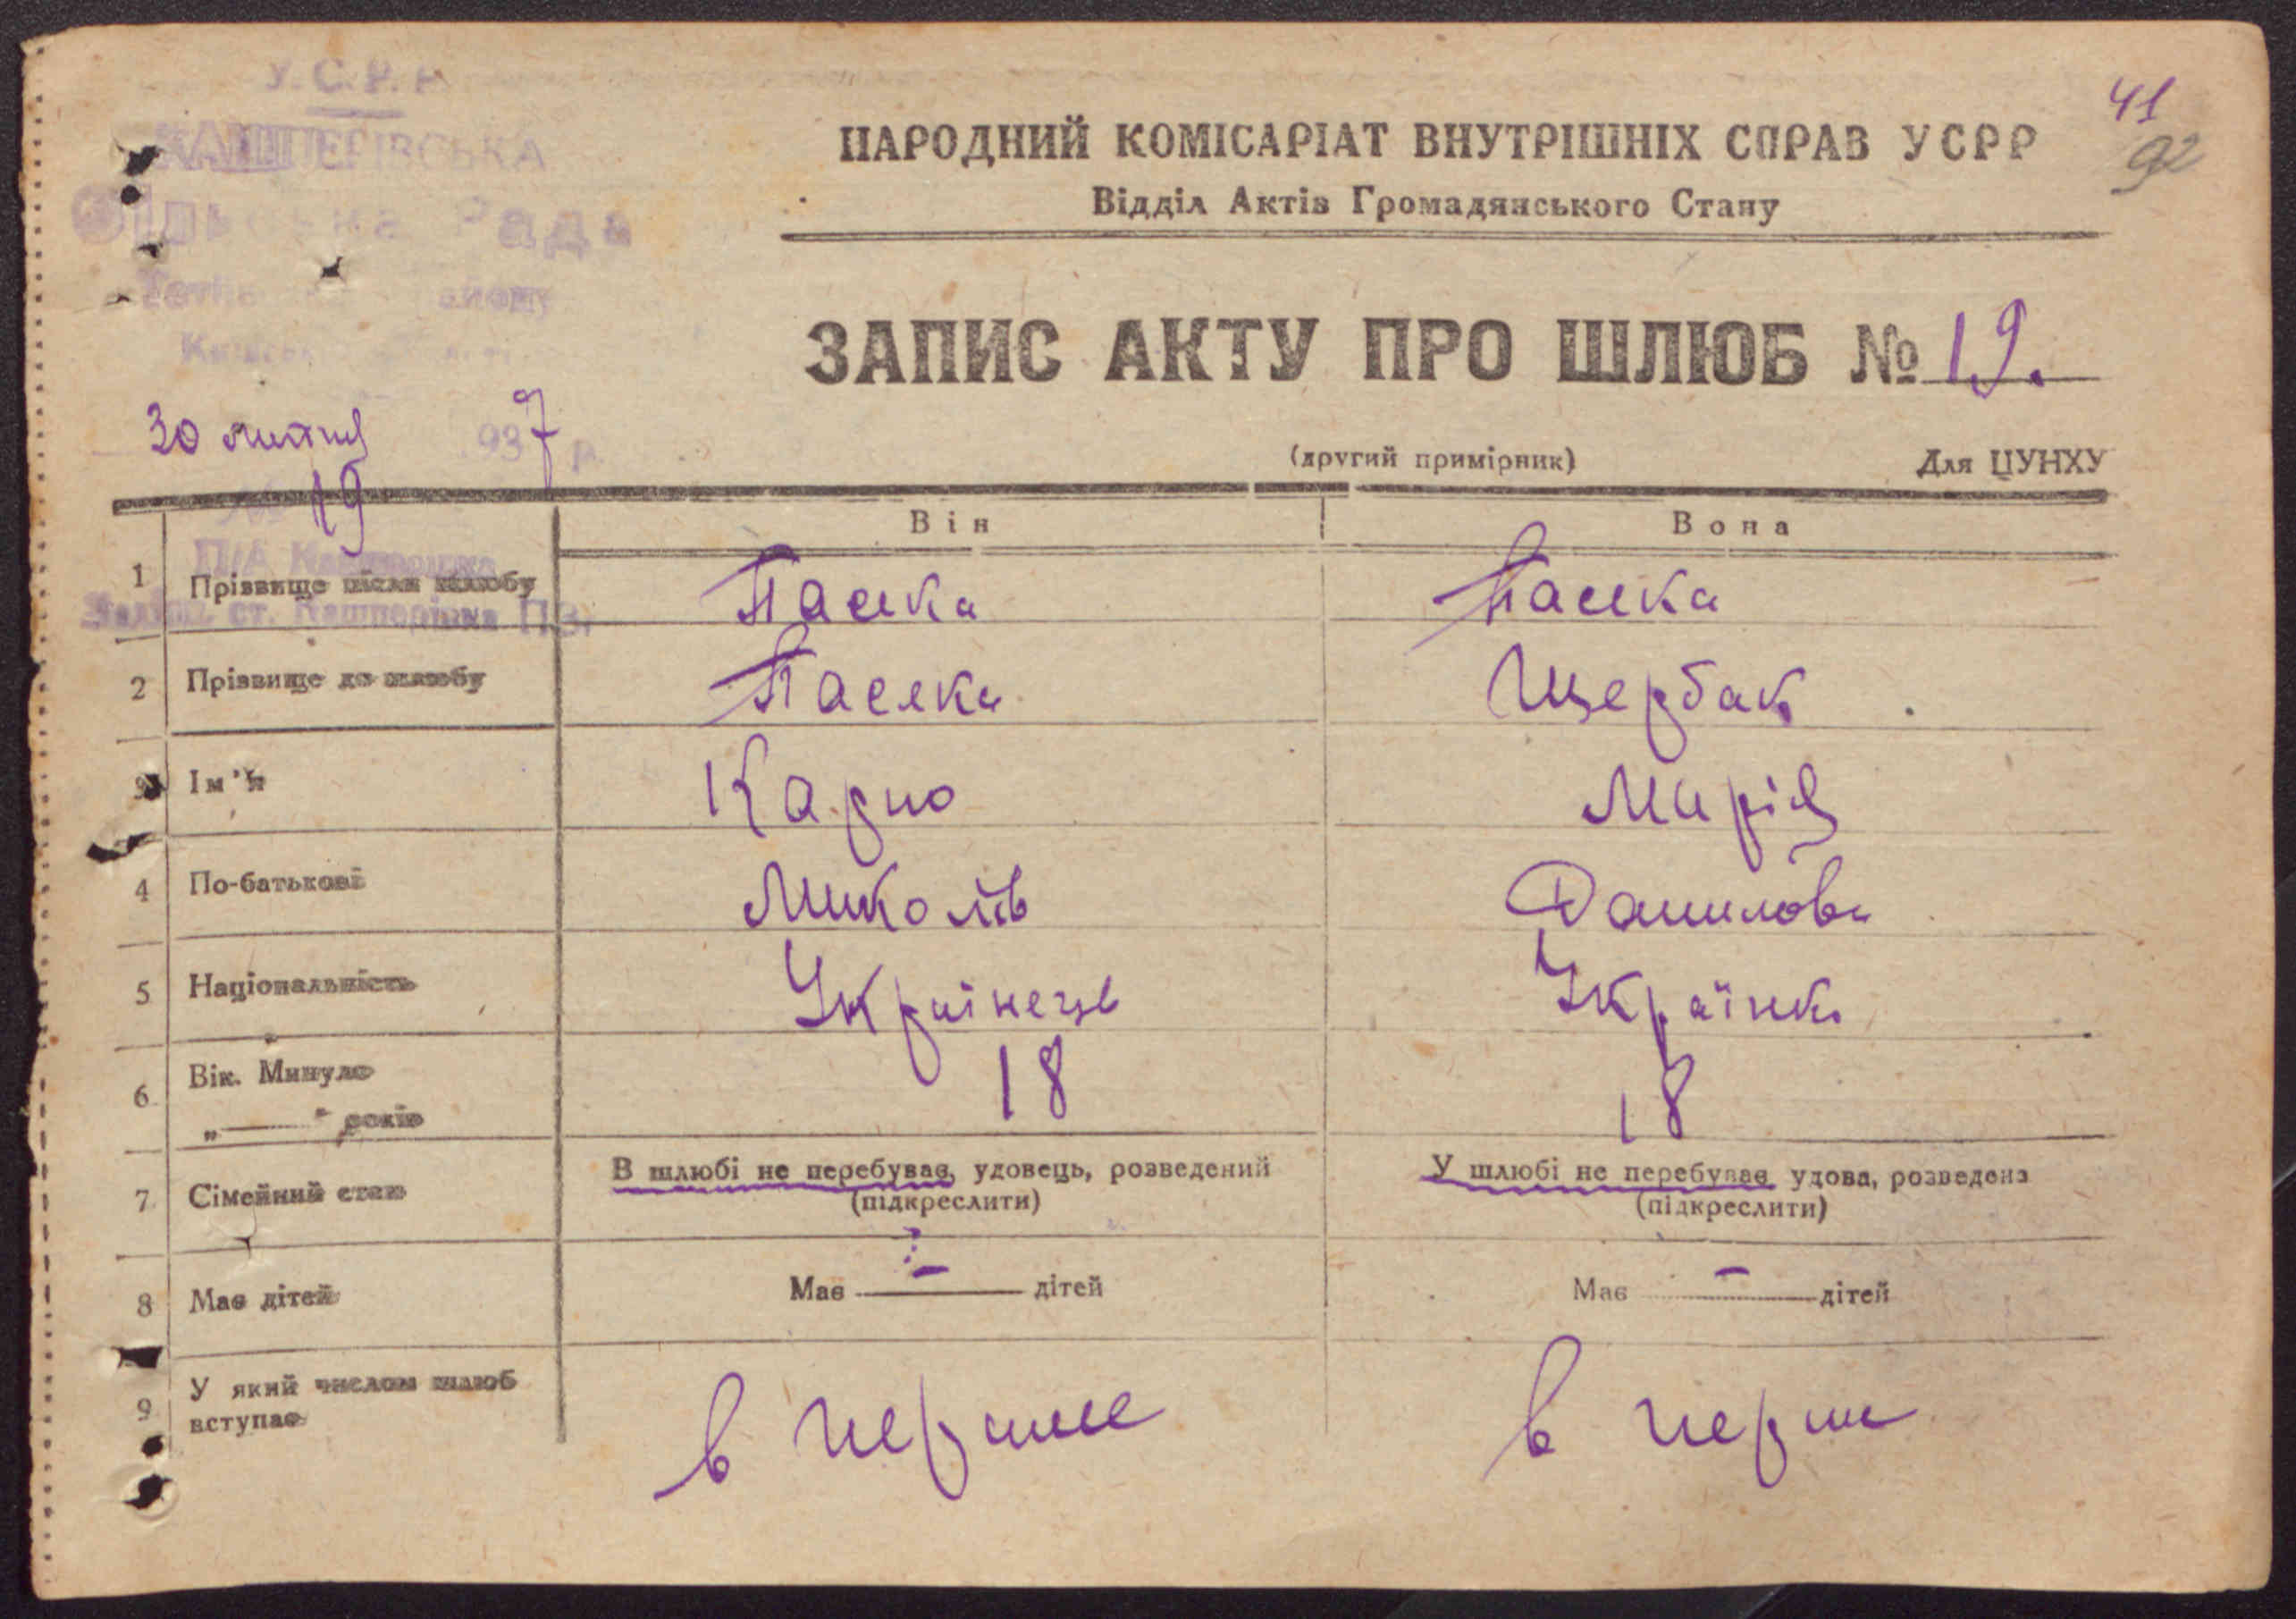 У.С.Р.Р
КАШПЕРІВСЬКА
Сільська Рада
41
92
НАРОДНИЙ КОМІСАРІАТ ВНУТРІШНІХ СПРАВ УСРР
Відділ Актів Громадянського Стану
ЗАПИС АКТУ ПРО ШЛЮБ № 19.
30 липня 1937 р.
(другий примірник) Для ЦУНХУ
№ 19
Він Вона
П/А Кашперівка
1 Прізвище після шлюбу Пасіка Пасіка
ст. Кашперівка ПЗ
2 Прізвище до шлюбу Пасіка Щербак
3 Ім'я Карпо Марія
4 По-батькові Миколів Данилова
5 Національність Українець Українка
6 Вік. Минуло
„ " років 18 18
7 Сімейний стан В шлюбі не перебував, удовець, розведений У шлюбі не перебував, удова, розведена
(підкреслити) (підкреслити)
8 Має дітей Має — дітей Має — дітей
9 У який числом шлюб вступає в перше в перше